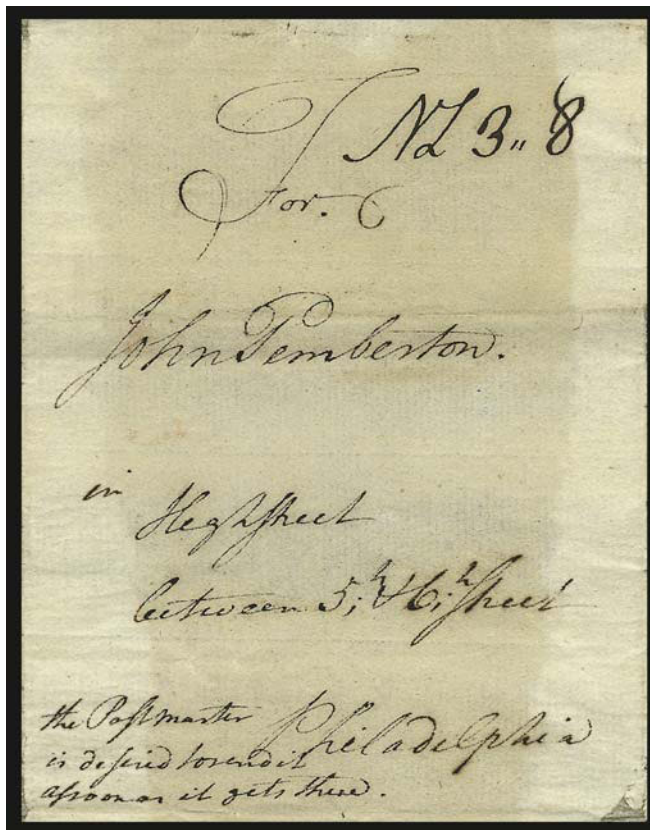 NL 3" 8
For.
John Pemberton.
in
High Street
between 5;th & 6;th Street
Philadelphia
the Postmaster
is desired to send it
as soon as it gets there.